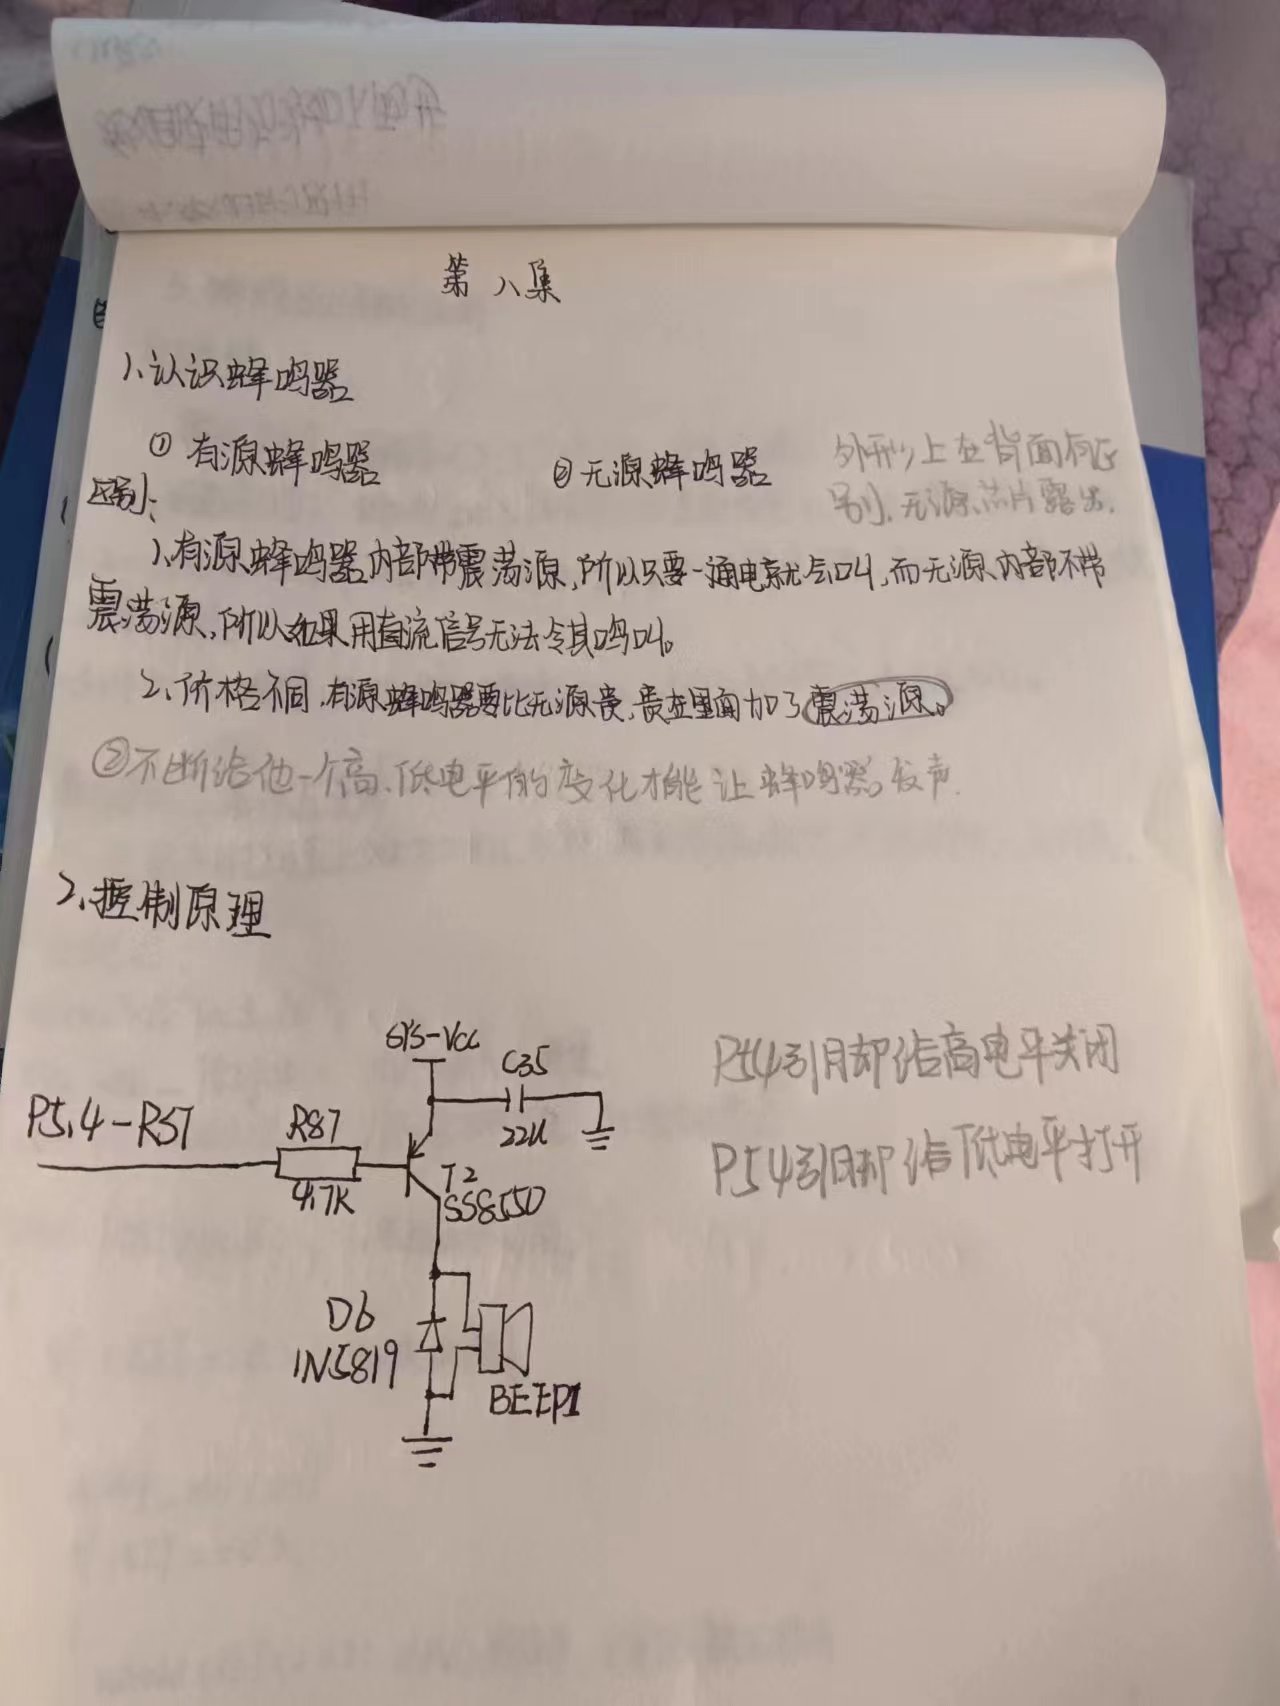 第八集
1、认识蜂鸣器
① 有源蜂鸣器 ②无源蜂鸣器 外形上在背面有区
别,无源芯片露出.
区别:
1、有源蜂鸣器内部带震荡源,所以只要一通电就会叫,而无源内部不带
震荡源,所以如果用直流信号无法令其鸣叫。
2、价格不同,有源蜂鸣器要比无源贵,贵在里面加了震荡源。
②不断给他一个高、低电平的变化才能让蜂鸣器发声.
2、控制原理
SYS-VCC
C35
22u
P5.4-R57
R87
4.7K
T2
SS8550
D6
1N5819
BEEP1
P54引脚给高电平关闭
P54引脚给低电平打开